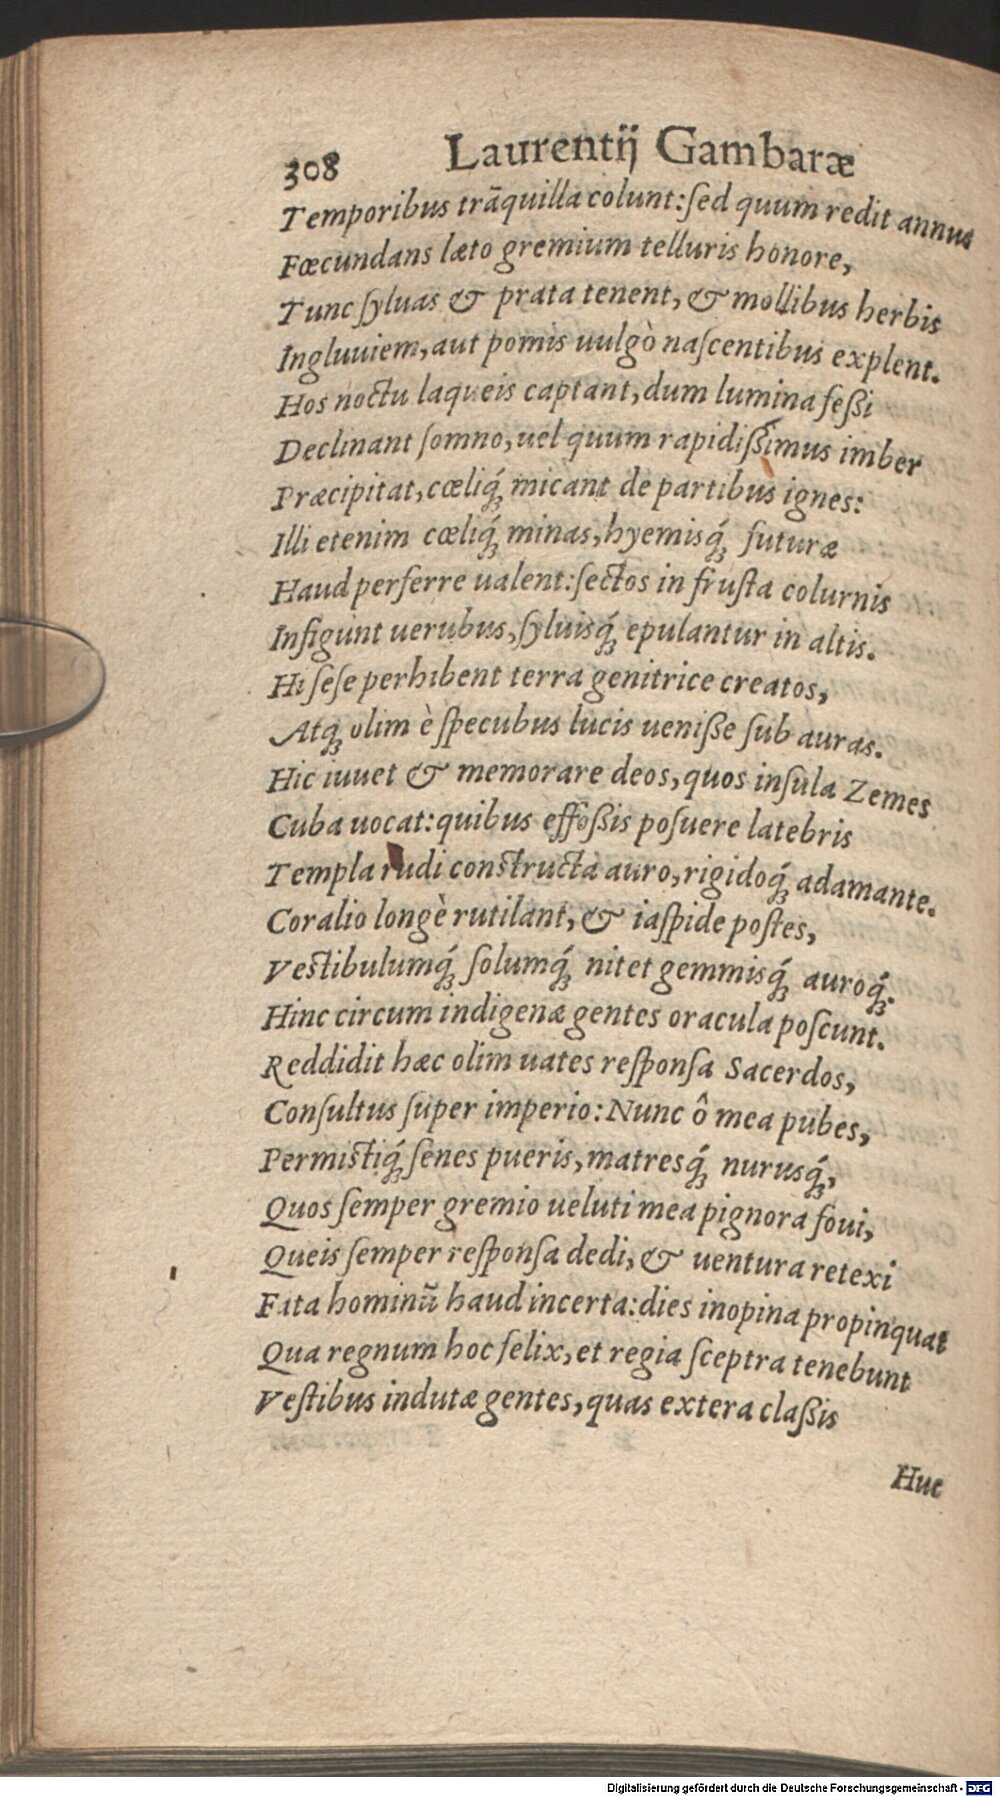 308 Laurentij Gambaræ
Temporibus trāquilla colunt: ſed quum redit annus
Fœcundans læto gremium telluris honore,
Tunc ſyluas & prata tenent, & mollibus herbis
Ingluuiem, aut pomis uulgò naſcentibus explent.
Hos noctu laqueis captant, dum lumina feßi
Declinant ſomno, uel quum rapidißimus imber
Præcipitat, cœliq́ꝫ micant de partibus ignes:
Illi etenim cœliq́ꝫ minas, hyemisq́ꝫ futuræ
Haud perferre ualent: ſectos in fruſta colurnis
Infigunt uerubus, ſyluisq́ꝫ epulantur in altis.
Hi ſeſe perhibent terra genitrice creatos,
Atqꝫ olim è ſpecubus lucis ueniße ſub auras.
Hic iuuet & memorare deos, quos inſula Zemes
Cuba uocat: quibus effoßis poſuere latebris
Templa rudi constructa auro, rigidoq́ꝫ adamante.
Coralio longè rutilant, & iaſpide poſtes,
Vestibulumq́ꝫ ſolumq́ꝫ nitet gemmisq́ꝫ auroq́ꝫ.
Hinc circum indigenæ gentes oracula poſcunt.
Reddidit hæc olim uates reſponſa Sacerdos,
Conſultus ſuper imperio: Nunc ô mea pubes,
Permistiq́ꝫ ſenes pueris, matresq́ꝫ nurusq́ꝫ,
Quos ſemper gremio ueluti mea pignora foui,
Queis ſemper reſponſa dedi, & uentura retexi
Fata hominū haud incerta: dies inopina propinquat
Qua regnum hoc felix, et regia ſceptra tenebunt
Veſtibus indutæ gentes, quas extera claßis
Huc
Digitalisierung gefördert durch die Deutsche Forschungsgemeinschaft - DFG